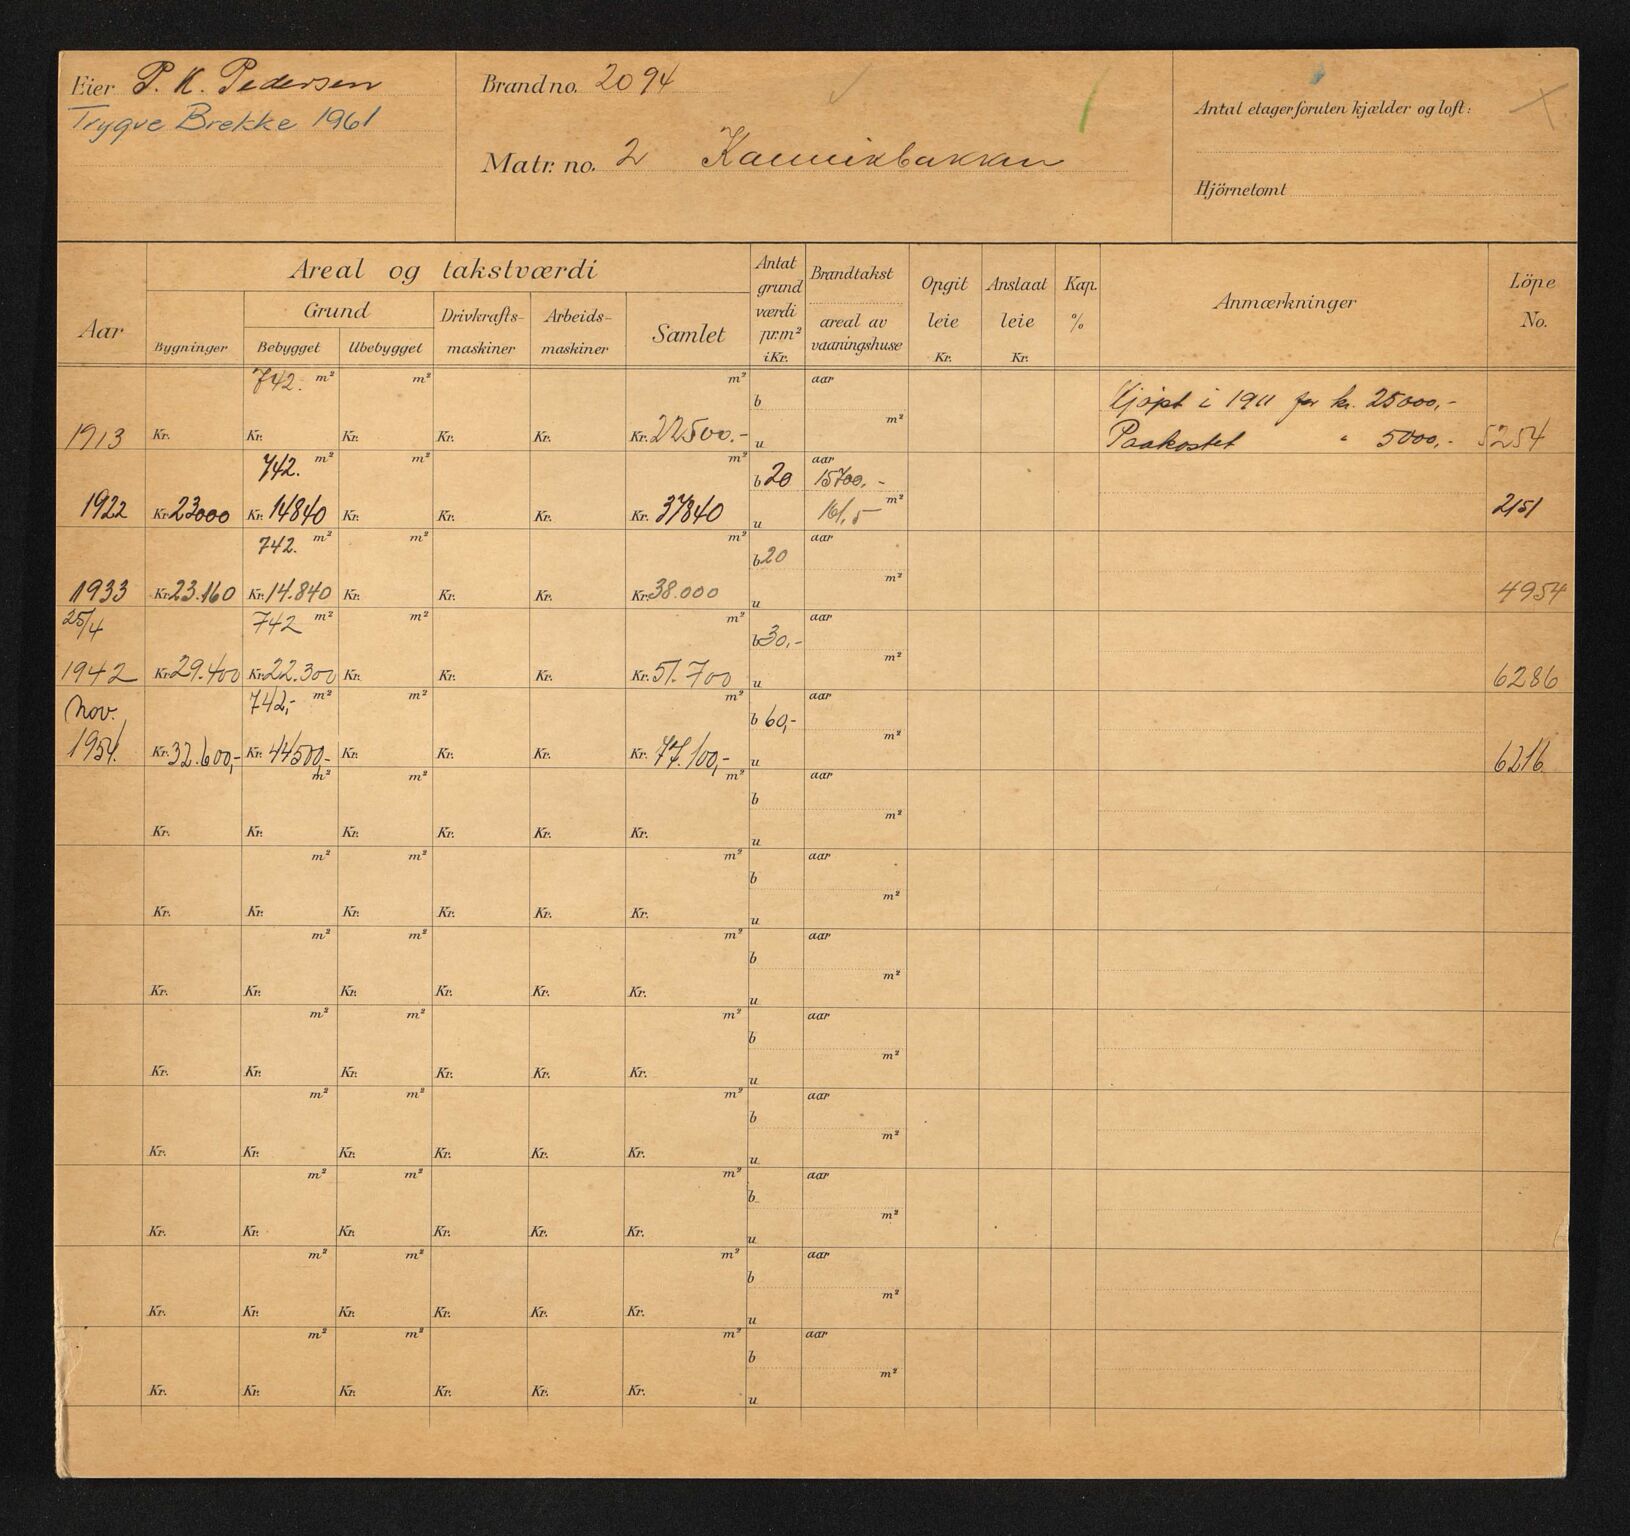 Eier P. K. Pedersen
Trygve Brekke 1961
Brand no. 2094
Matr. no. 2 Kannikbakken
Antal etager foruten kjælder og loft:
Hjörnetomt
Aar
Areal og takstværdi
Bygninger
Grund
Bebygget
Ubebygget
Drivkrafts-
maskiner
Arbeids-
maskiner
Samlet
Antat
grund
værdi
pr.m²
i Kr.
Brandtakst
areal av
vaaningshuse
Opgit
leie
Kr.
Anslaat
leie
Kr.
Kap.
%
Anmærkninger
Löpe
No.
742. m² m² m² aar
b Kjøpt i 1911 for kr. 25000,-
m²
1913 Kr. Kr. Kr. Kr. Kr. Kr. 22500.- u Paakostet " 5000,- 5254
742. m² m² m² aar
b 20 15700,-
161,5 m²
1922 Kr. 23000 Kr. 14840 Kr. Kr. Kr. Kr. 37840 u 2151
742. m² m² m² aar
b 20
m²
1933 Kr. 23.160 Kr. 14.840 Kr. Kr. Kr. Kr. 38.000 u 4954
25/4 742 m² m² m² aar
b 30,-
m²
1942 Kr. 29.400 Kr. 22.300 Kr. Kr. Kr. Kr. 51.700 u 6286
Nov. 742,- m² m² m² aar
b 60,-
m²
1954. Kr. 32.600,- Kr. 44500,- Kr. Kr. Kr. Kr. 77.100,- u 6216
m² m² m² aar
b
m²
Kr. Kr. Kr. Kr. Kr. Kr. u
m² m² m² aar
b
m²
Kr. Kr. Kr. Kr. Kr. Kr. u
m² m² m² aar
b
m²
Kr. Kr. Kr. Kr. Kr. Kr. u
m² m² m² aar
b
m²
Kr. Kr. Kr. Kr. Kr. Kr. u
m² m² m² aar
b
m²
Kr. Kr. Kr. Kr. Kr. Kr. u
m² m² m² aar
b
m²
Kr. Kr. Kr. Kr. Kr. Kr. u
m² m² m² aar
b
m²
Kr. Kr. Kr. Kr. Kr. Kr. u
m² m² m² aar
b
m²
Kr. Kr. Kr. Kr. Kr. Kr. u